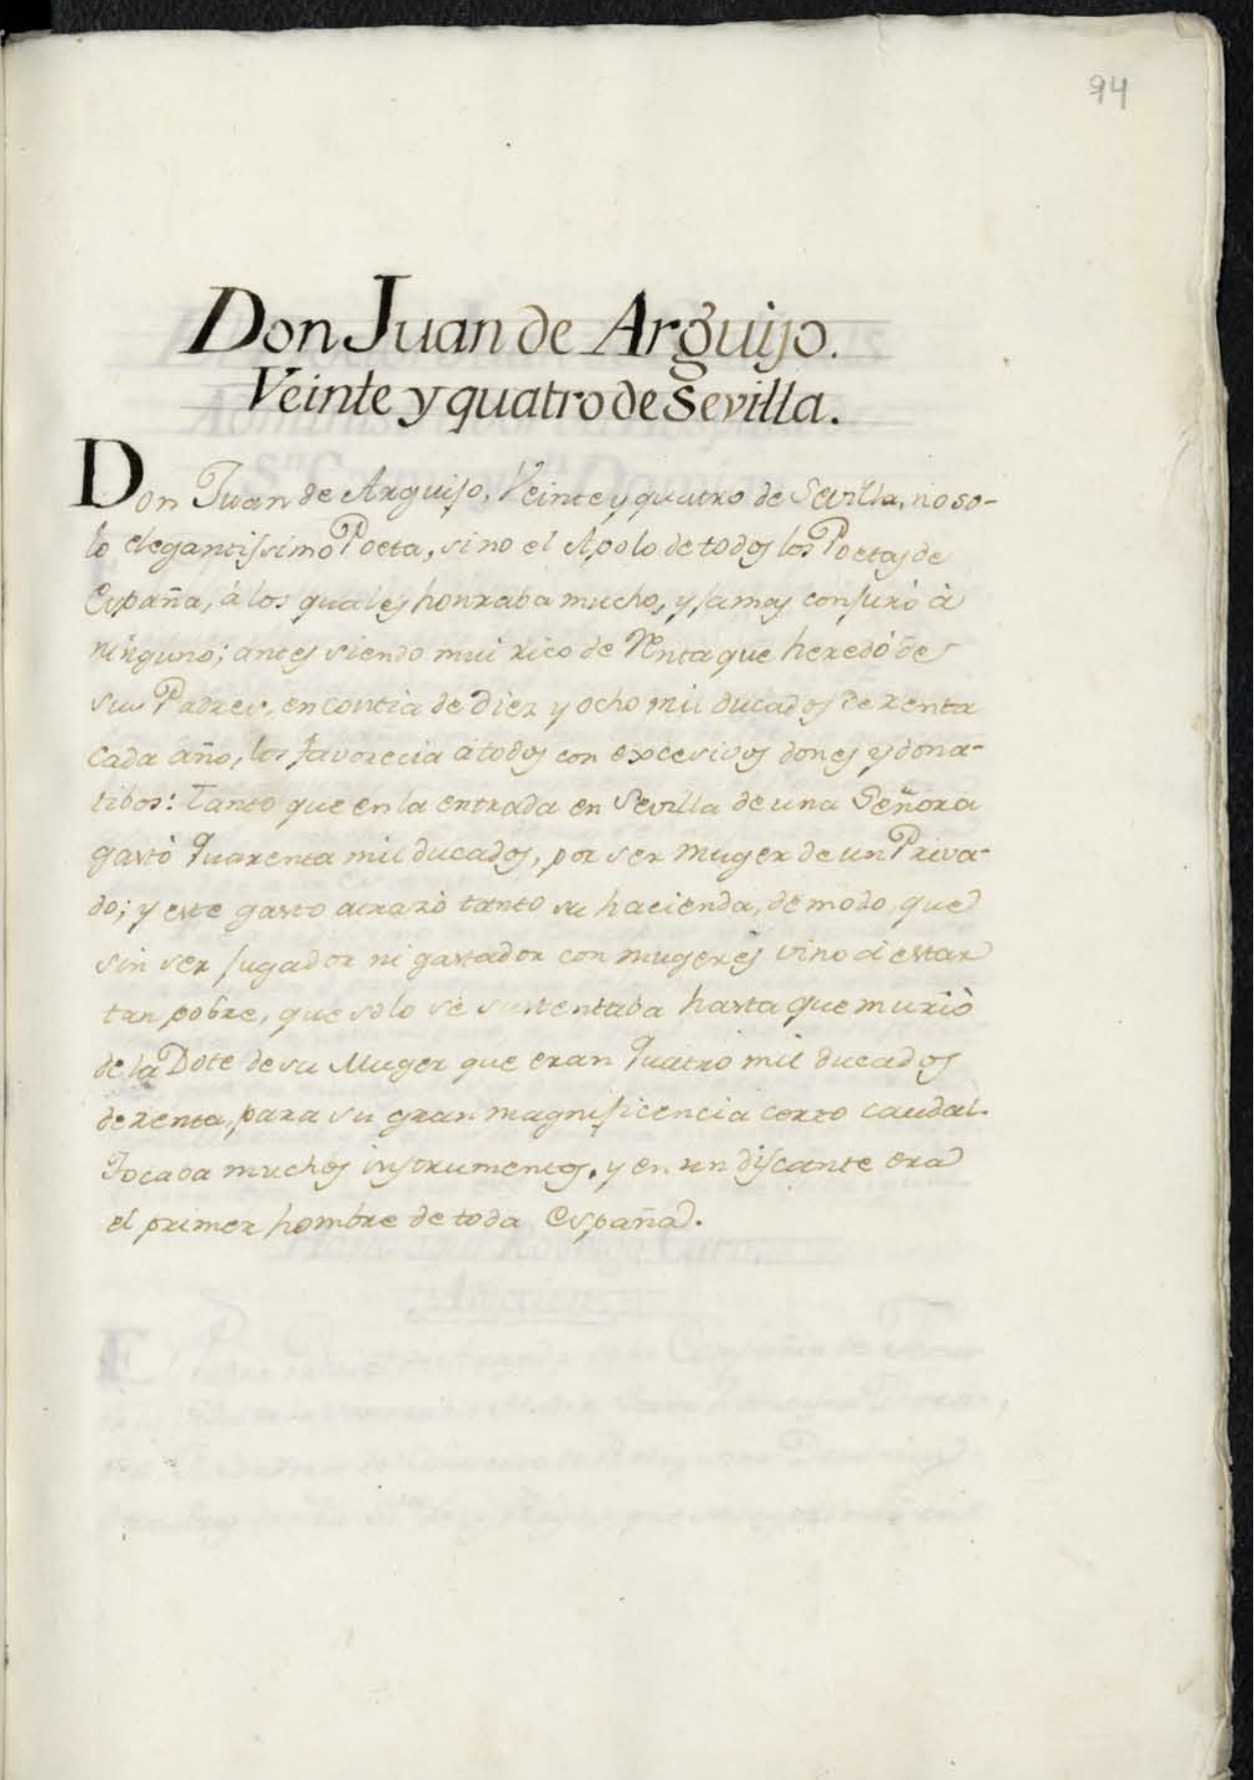 94
Don Juan de Arguijo.
Veinte y quatro de Sevilla.
Don Juan de Arguijo, Veinte y quatro de Sevilla, no so-
lo elegantissimo Poeta, sino el Apolo de todos los Poetas de
España, á los quales honraba mucho, y jamas consuró à
ninguno; antes siendo mui rico de Renta que heredó de
sus Padres, en contia de Diez y ocho mil ducados de renta
cada año, los favorecia à todos con excesivos dones y dona-
tibos: Tanto que en la entrada en Sevilla de una Señora
gastò quarenta mil ducados, por ser muger de un Priva-
do; y este gasto atrazò tanto su hacienda, de modo, que
sin ser jugador ni gastador con mugeres vino à estar
tan pobre, que solo se sustentaba hasta que muriò
de la Dote de su Muger que eran quatro mil ducados
de renta, para su gran magnificencia corto caudal.
Tocaba muchos instrumentos, y en un discante era
el primer hombre de toda España.